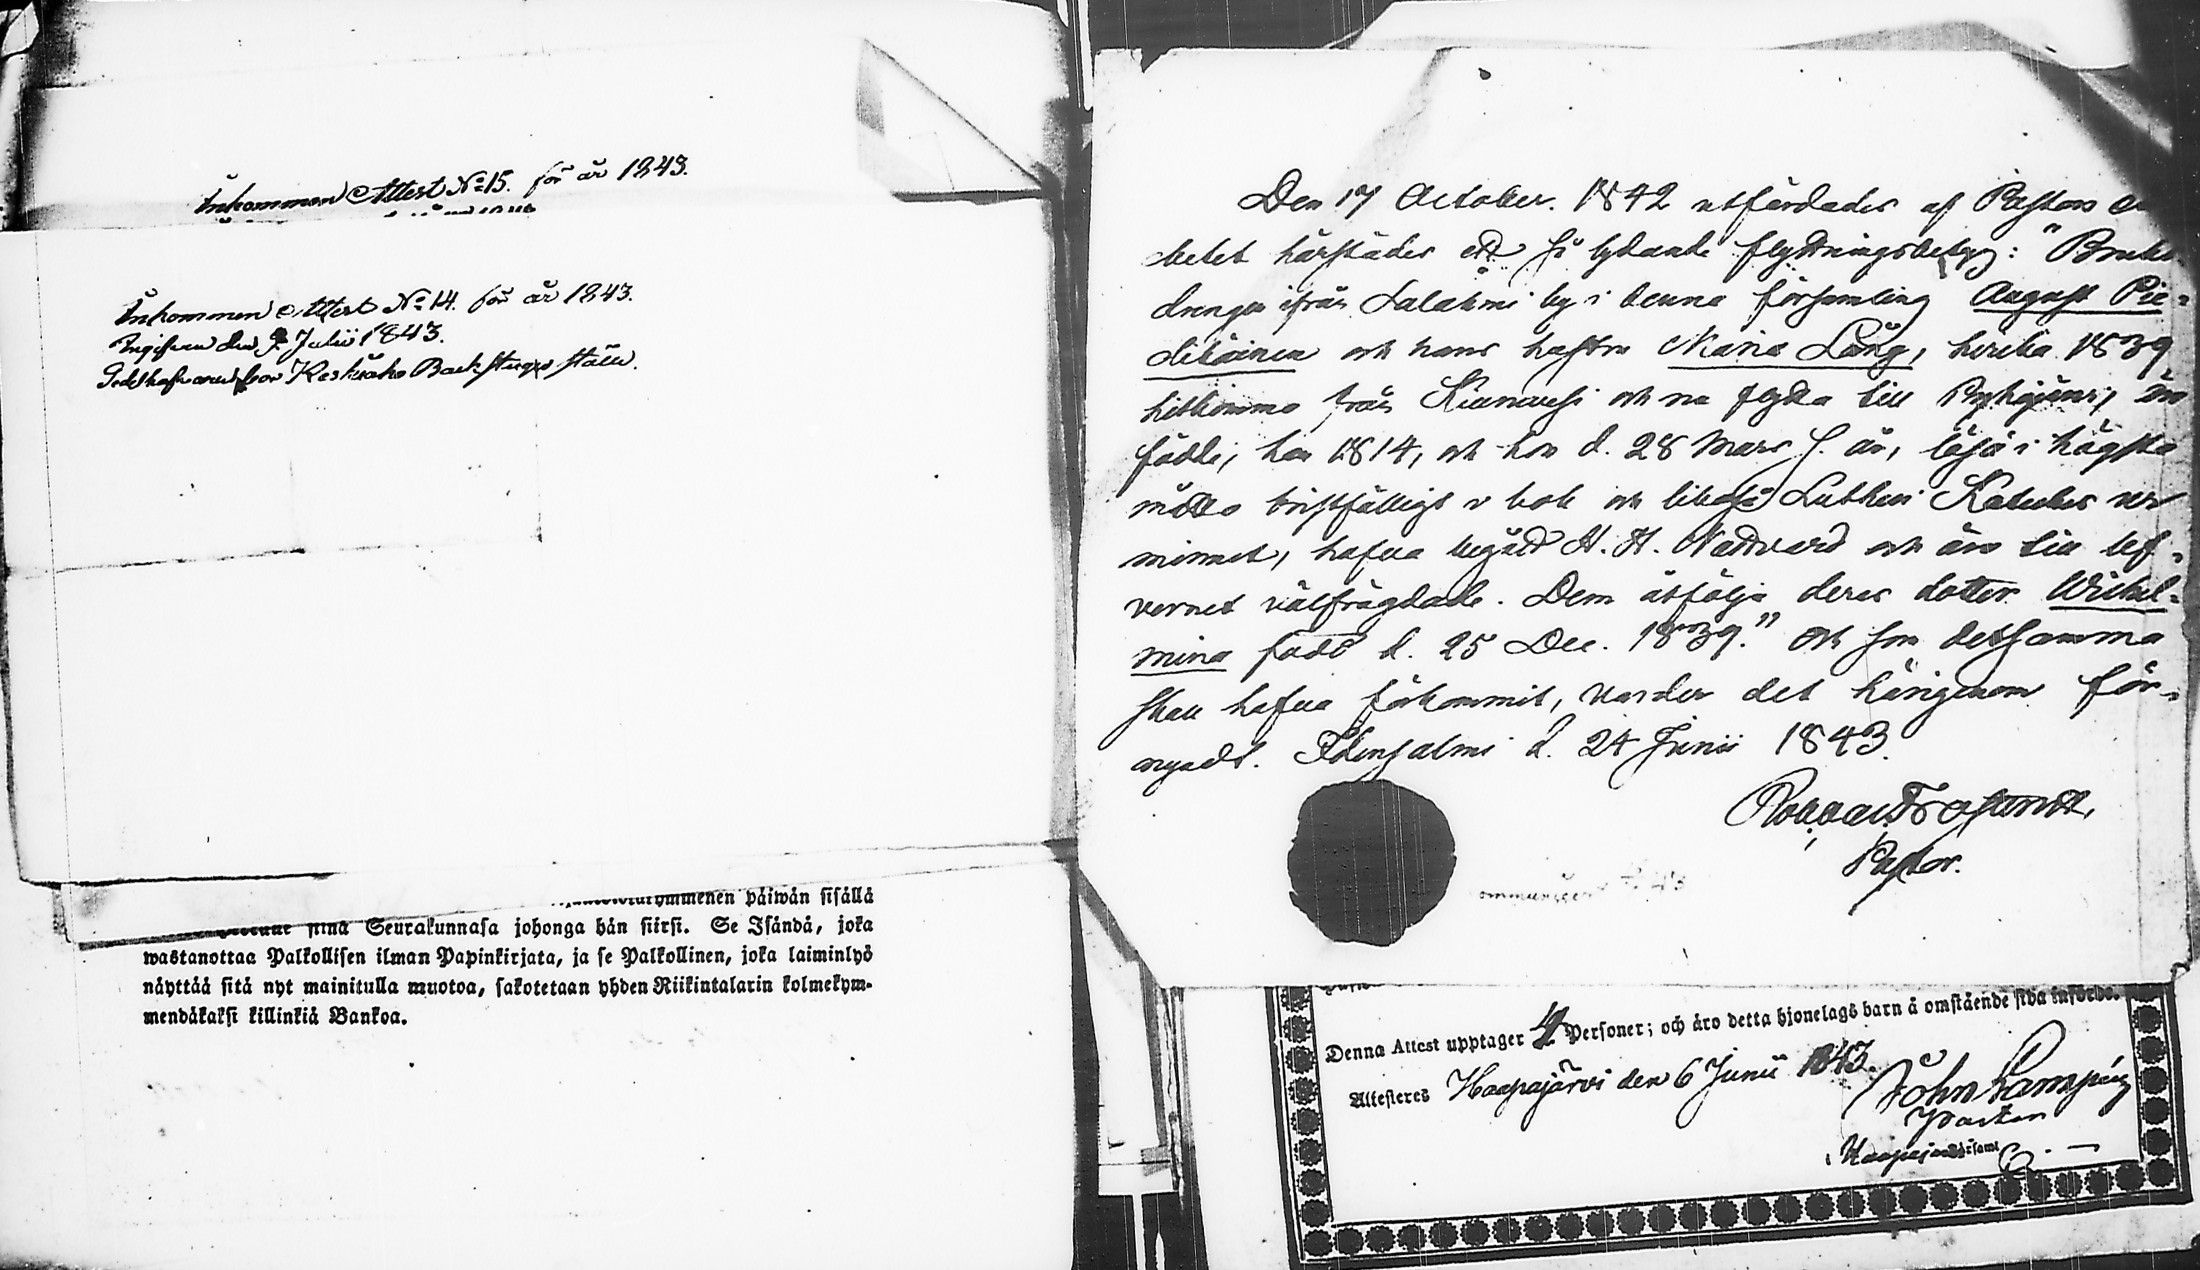 Inkommen Attest No 15. för år 1843.
Inkommen Attest No 14. för år 1843.
den 9. Julii 1843.
Backstugo ställe.
päiwän sisällä
Seurakunnasa johonga hän siirsi. Se Isändä, joka
wastanottaa Palkollisen ilman Papinkirjata, ja se Palkollinen, joka laiminlyö
näyttää sitä nyt mainitulla muotoa, sakotetaan yhden Riikintalarin kolmekym-
mendäkaksi killinkiä Bankoa.
Den 17 October. 1842 utfärdades af Pastors
betet härstädes ett så lydande flyttningsbetyg: "Bruks
drengen ifrån Salahmi by i denna församling August Pie-
dikäinen och hans hustru Maria Lång, hvilka 1839
hitkommo från Kiuruvesi och nu flytta till Pyhäjärvi, äro
födde, han 1814, och hon d. 28 Mars s. år, läsa i högsta
måtto bristfälligt i bok och likaså Lutheri Kateches ur
minnet, hafva begått H. H. Nattvard och äro till lef-
vernet välfrägdade. Dem åtfölja deras dotter Wilhel-
mina född d. 25 Dec. 1839." Och som detsamma
skall hafva förkommit, varder det härigenom för-
nyadt. Idensalmi d. 24 Junii 1843.
Pastor.
Denna Attest upptager 4 Personer; och äro detta hjonelags barn å omstående sida införde.
Attesteres Haapajärvi den 6 Junii 1843.
John Lampén
Pastor